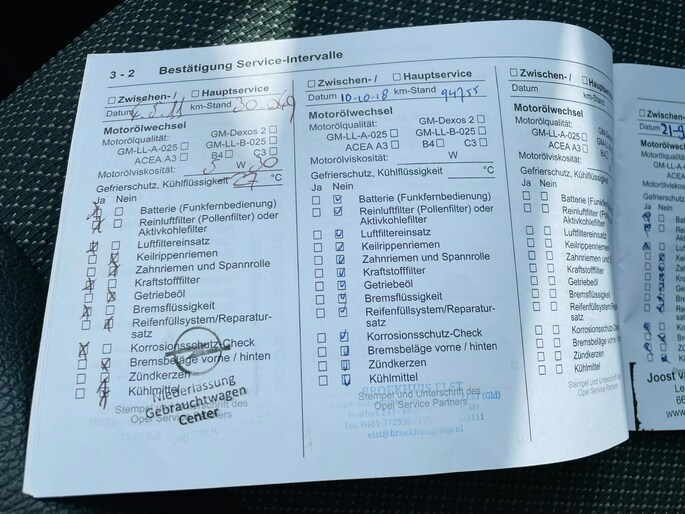 3 - 2 Bestätigung Service-Intervalle
Zwischen- / Hauptservice
Datum 4.5.11 km-Stand 30.049
Motorölwechsel
Motorölqualität: GM-Dexos 2
GM-LL-A-025 GM-LL-B-025
ACEA A3 B4 C3
Motorölviskosität: 5 W 30
Gefrierschutz, Kühlflüssigkeit °C
Ja Nein
Batterie (Funkfernbedienung)
Reinluftfilter (Pollenfilter) oder
Aktivkohlefilter
Luftfiltereinsatz
Keilrippenriemen
Zahnriemen und Spannrolle
Kraftstofffilter
Getriebeöl
Bremsflüssigkeit
Reifenfüllsystem/Reparatur-
satz
Korrosionsschutz-Check
Bremsbeläge vorne / hinten
Zündkerzen
Kühlmittel
Stempel und Unterschrift des
Opel Service Partners
Niederlassung
Gebrauchtwagen
Center
Zwischen- / Hauptservice
Datum 10-10-18 km-Stand 94755
Motorölwechsel
Motorölqualität: GM-Dexos 2
GM-LL-A-025 GM-LL-B-025
ACEA A3 B4 C3
Motorölviskosität: W
Gefrierschutz, Kühlflüssigkeit °C
Ja Nein
Batterie (Funkfernbedienung)
Reinluftfilter (Pollenfilter) oder
Aktivkohlefilter
Luftfiltereinsatz
Keilrippenriemen
Zahnriemen und Spannrolle
Kraftstofffilter
Getriebeöl
Bremsflüssigkeit
Reifenfüllsystem/Reparatur-
satz
Korrosionsschutz-Check
Bremsbeläge vorne / hinten
Zündkerzen
Kühlmittel
BROEKHUIS ELST
Stempel und Unterschrift des
Opel Service Partners
(Gld)
Tel. 0481-372938
elst@broekhuisgroep.nl
Zwischen- / Hauptserv
Datum km-Stand
Motorölwechsel
Motorölqualität: GM-
GM-LL-A-025 GM-LL
ACEA A3 B4
Motorölviskosität: W
Gefrierschutz, Kühlflüssigkeit
Ja Nein
Batterie (Funkfernbed
Reinluftfilter (Pollenf
Aktivkohlefilter
Luftfiltereinsatz
Keilrippenriemen
Zahnriemen und Spa
Kraftstofffilter
Getriebeöl
Bremsflüssigkeit
Reifenfüllsystem/R
satz
Korrosionsschutz-
Bremsbeläge vorn
Zündkerzen
Kühlmittel
Stempel und Unterschrift
Opel Service Partners
Zwischen-
Datum 21-9
Motorölwech
Motorölqualit
GM-LL-A-
ACEA
Motorölvisk
Gefrierschu
Ja Nein
Joost v